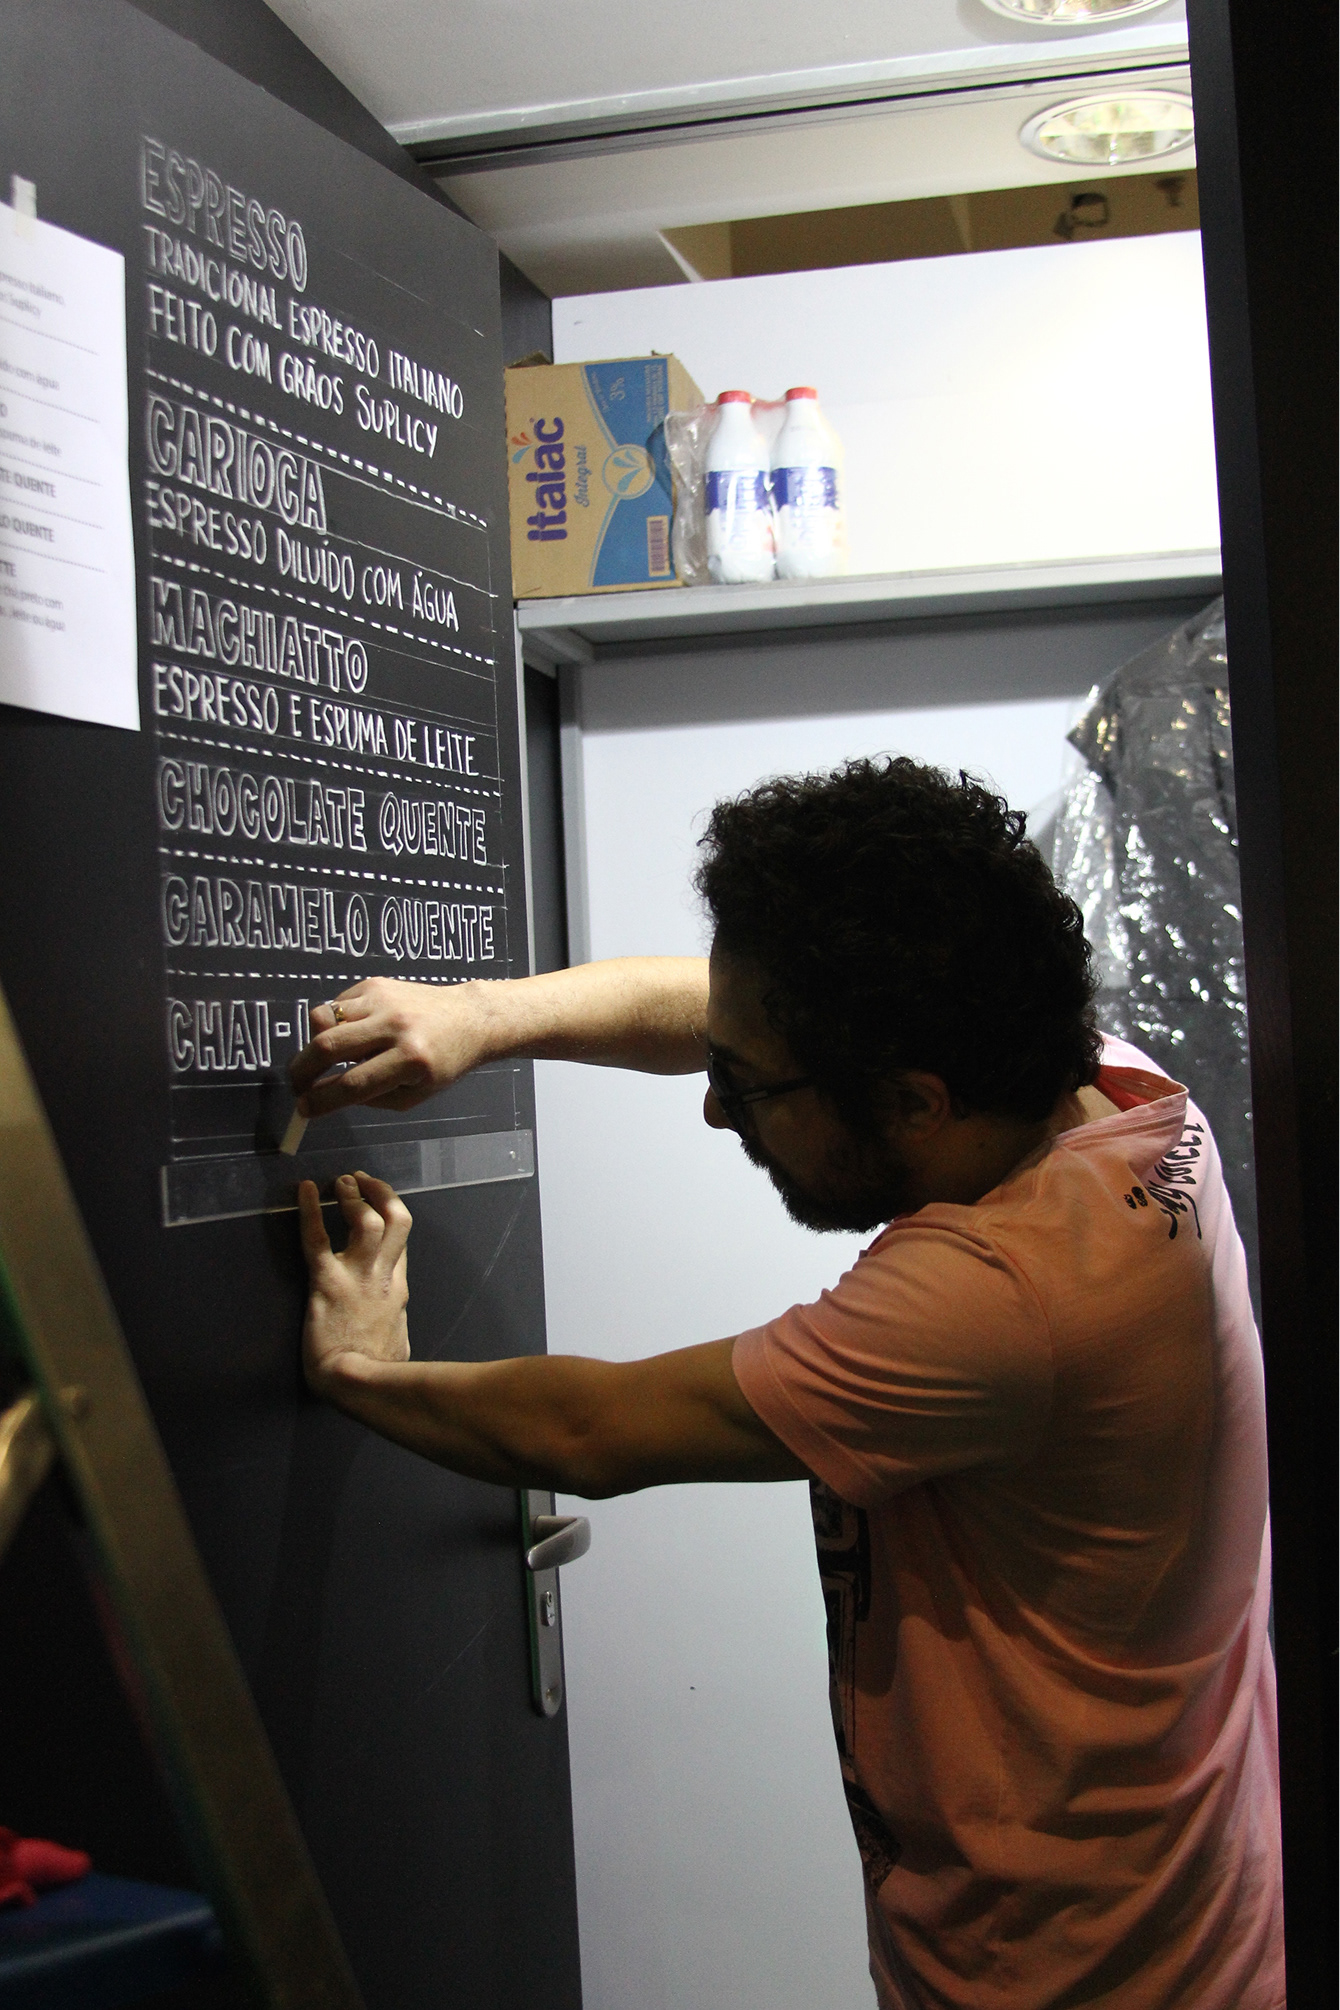 ESPRESSO
TRADICIONAL ESPRESSO ITALIANO
FEITO COM GRÃOS SUPLICY
CARIOCA
ESPRESSO DILUÍDO COM ÁGUA
MACHIATTO
ESPRESSO E ESPUMA DE LEITE
CHOCOLATE QUENTE
CARAMELO QUENTE
CHAI-
Italiano,
Suplicy
com água
espuma de leite
QUENTE
QUENTE
preto com
leite ou água
italac
Integral
3%